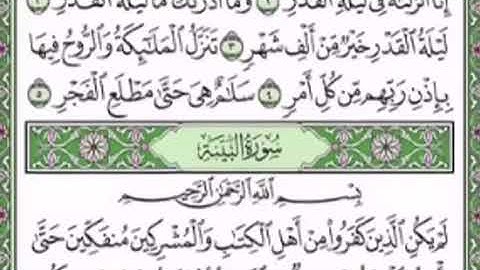 إِنَّآ أَنزَلْنَٰهُ فِى لَيْلَةِ ٱلْقَدْرِ ١ وَمَآ أَدْرَىٰكَ مَا لَيْلَةُ ٱلْقَدْرِ ٢
لَيْلَةُ ٱلْقَدْرِ خَيْرٌ مِّنْ أَلْفِ شَهْرٍ ٣ تَنَزَّلُ ٱلْمَلَٰٓئِكَةُ وَٱلرُّوحُ فِيهَا
بِإِذْنِ رَبِّهِم مِّن كُلِّ أَمْرٍ ٤ سَلَٰمٌ هِىَ حَتَّىٰ مَطْلَعِ ٱلْفَجْرِ ٥
سُورَةُ البَيِّنَةِ
بِسْمِ ٱللَّهِ ٱلرَّحْمَٰنِ ٱلرَّحِيمِ
لَمْ يَكُنِ ٱلَّذِينَ كَفَرُوا۟ مِنْ أَهْلِ ٱلْكِتَٰبِ وَٱلْمُشْرِكِينَ مُنفَكِّينَ حَتَّىٰ